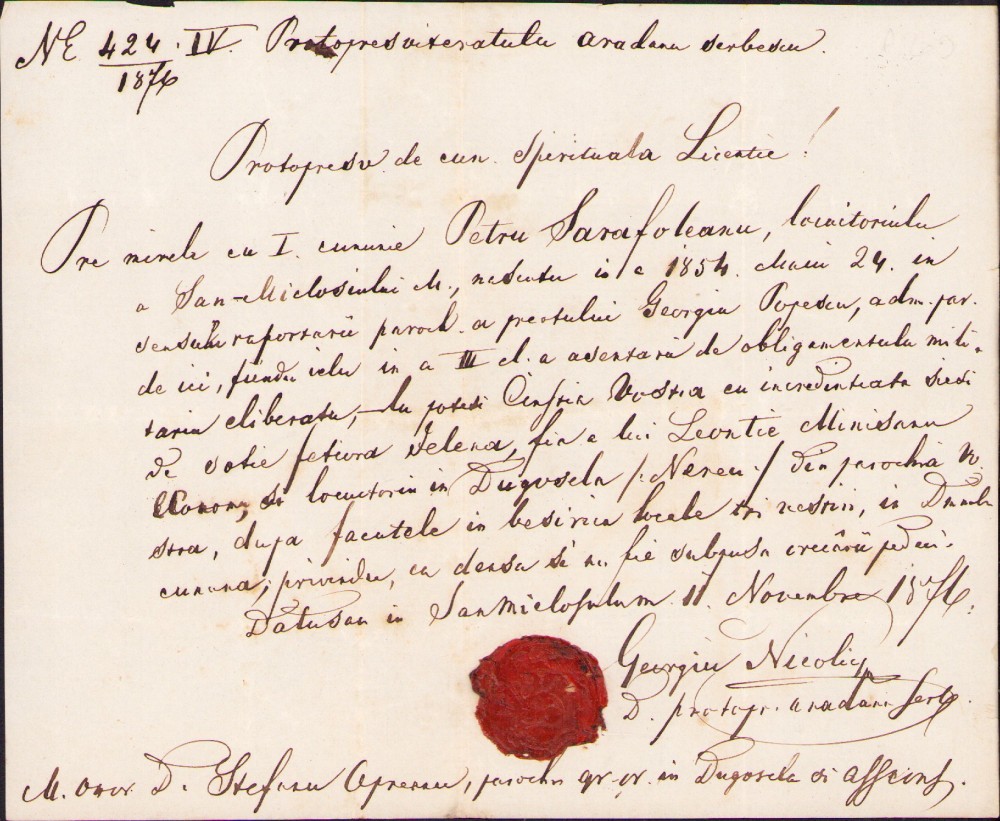 NE 424 · IV. Protopresviteratulu aradanu serbescu.
1876
Protopresv. de cun. Spirituala Licentie!
Pre mirele cu I. cununie Petru Sarafoleanu, locuitoriulu
a San-Miclosiului M., nascutu in a 1854. Maiu 24. in
sensulu raportarii paroch. a preotului Georgiu Popescu, adm. par.
de ici, fiindu ielu in a III cl. a asentarii de obligamentulu mili-
tariu eliberatu, – lu poteti Cinstia Vostra cu incredintiata siesi
de sotie fetiora Ielena, fia a lui Leontie Minisanu
Econom, si locuitoriu in Dugosela /: Nereu :/ din parochia Vo
stra, dupa facutele in beserica locale tri vestiri, in Dumnle
cununa; privindu, ca densa se nu fie subpusa orecarii pedeci.
Datusau in Sanmiclosulum. 11. Novembre 1876.
Georgiu Nicolicz
D. protopr. aradanu Serb.
M. onor. D. Stefanu Opreanu, parochu gr. or. in Dugosela si assins.